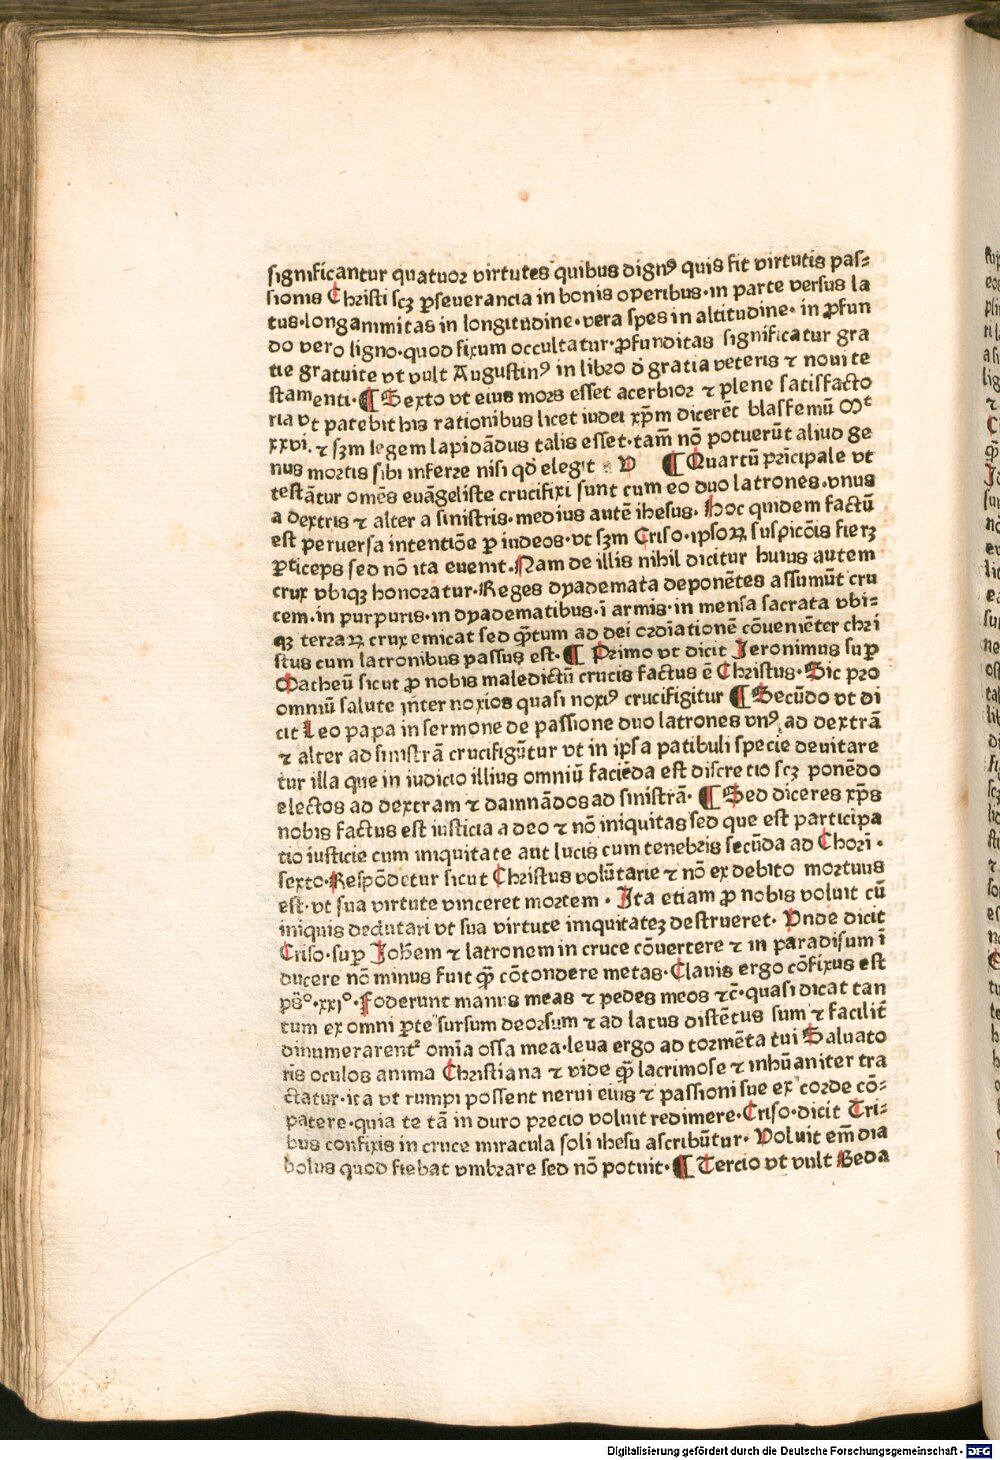 significantur quatuor virtutes quibus dignꝰ quis fit virtutis pas⸗
sionis Christi scꝫ ꝑseuerancia in bonis operibus·in parte versus la
tus·longanimitas in longitudine·vera spes in altitudine· in ꝓfun
do vero ligno·quod fixum occultatur·ꝓfunditas significatur gra
tie gratuite vt vult Augustinꝰ in libro d̄ gratia veteris ⁊ noui te
stamenti·¶ Sexto vt eius mors esset acerbior ⁊ plene satisfacto
ria vt patebit his rationibus licet iudei xp̄m dicerēt blasfemū Mᵗ
xxvi. ⁊ sꝫm legem lapidādus talis esset·tam̄ nō potuerūt aliud ge
nus mortis sibi inferre nisi qd̄ elegit : D ¶ Quartū prīcipale vt
testātur omēs euāgeliste crucifixi sunt cum eo duo latrones·vnus
a dextris ⁊ alter a sinistris·medius autē ihesus· Hoc quidem factū
est peruersa intentiōe ꝑ iudeos·vt sꝫm Criso·ipsoꝝ suspicōis fierꝫ
ꝑticeps sed nō ita euenit·Nam de illis nihil dicitur huius autem
crux vbiqꝫ honoratur·Reges dyademata deponētes assumūt cru
cem·in purpuris·in dyadematibus·ī armis·in mensa sacrata vbi⸗
qꝫ terraꝝ crux emicat sed qͣ̄tum ad dei ordīationē cōueniēter chri
stus cum latronibus passus est·¶ Primo vt dicit Jeronimus suꝑ
Matheū sicut ꝓ nobis maledictū crucis factus ē Christus· Sic pro
omniū salute inter noxios quasi noxiꝰ crucifigitur ¶ Secūdo vt di
cit Leo papa in sermone de passione duo latrones vnꝰ ad dextrā
⁊ alter ad sinistrā crucifigūtur vt in ipsa patibuli specie deuitare
tur illa que in iudicio illius omniū faciēda est discretio scꝫ ponēdo
electos ad dextram ⁊ damnādos ad sinistrā· ¶ Sed diceres xp̄s
nobis factus est iusticia a deo ⁊ nō iniquitas sed que est participa
tio iusticie cum iniquitate aut lucis cum tenebris secūda ad Chorī·
sexto·Respōdetur sicut Christus volūtarie ⁊ nō ex debito mortuus
est·vt sua virtute vinceret mortem· Ita etiam ꝓ nobis voluit cū
iniquis deputari vt sua virtute iniquitateꝫ destrueret· Vnde dicit
Criso·suꝑ Joh̄em ⁊ latronem in cruce cōuertere ⁊ in paradisum ī
ducere nō minus fuit qͣ̄ cōtondere metas·Clauis ergo cōfixus est
ps̄º·xxjº·Foderunt manus meas ⁊ pedes meos ⁊c̄·quasi dicat tan
tum ex omni ꝑte sursum deorsum ⁊ ad latus distētus sum ⁊ facilit̄
dinumerarent᷑ om̄ia ossa mea·leua ergo ad tormēta tui Saluato
ris oculos anima Christiana ⁊ vide qͣ̄ lacrimose ⁊ inhūaniter tra
ctatur·ita vt rumpi possent nerui eius ⁊ passioni sue ex corde cō⸗
patere·quia te tā in duro precio voluit redimere·Criso·dicit Tri⸗
bus confixis in cruce miracula soli ihesu ascribūtur· Voluit em̄ dia
bolus quod fiebat vmbrare sed nō potuit·¶ Tercio vt vult Beda
Digitalisierung gefördert durch die Deutsche Forschungsgemeinschaft - DFG